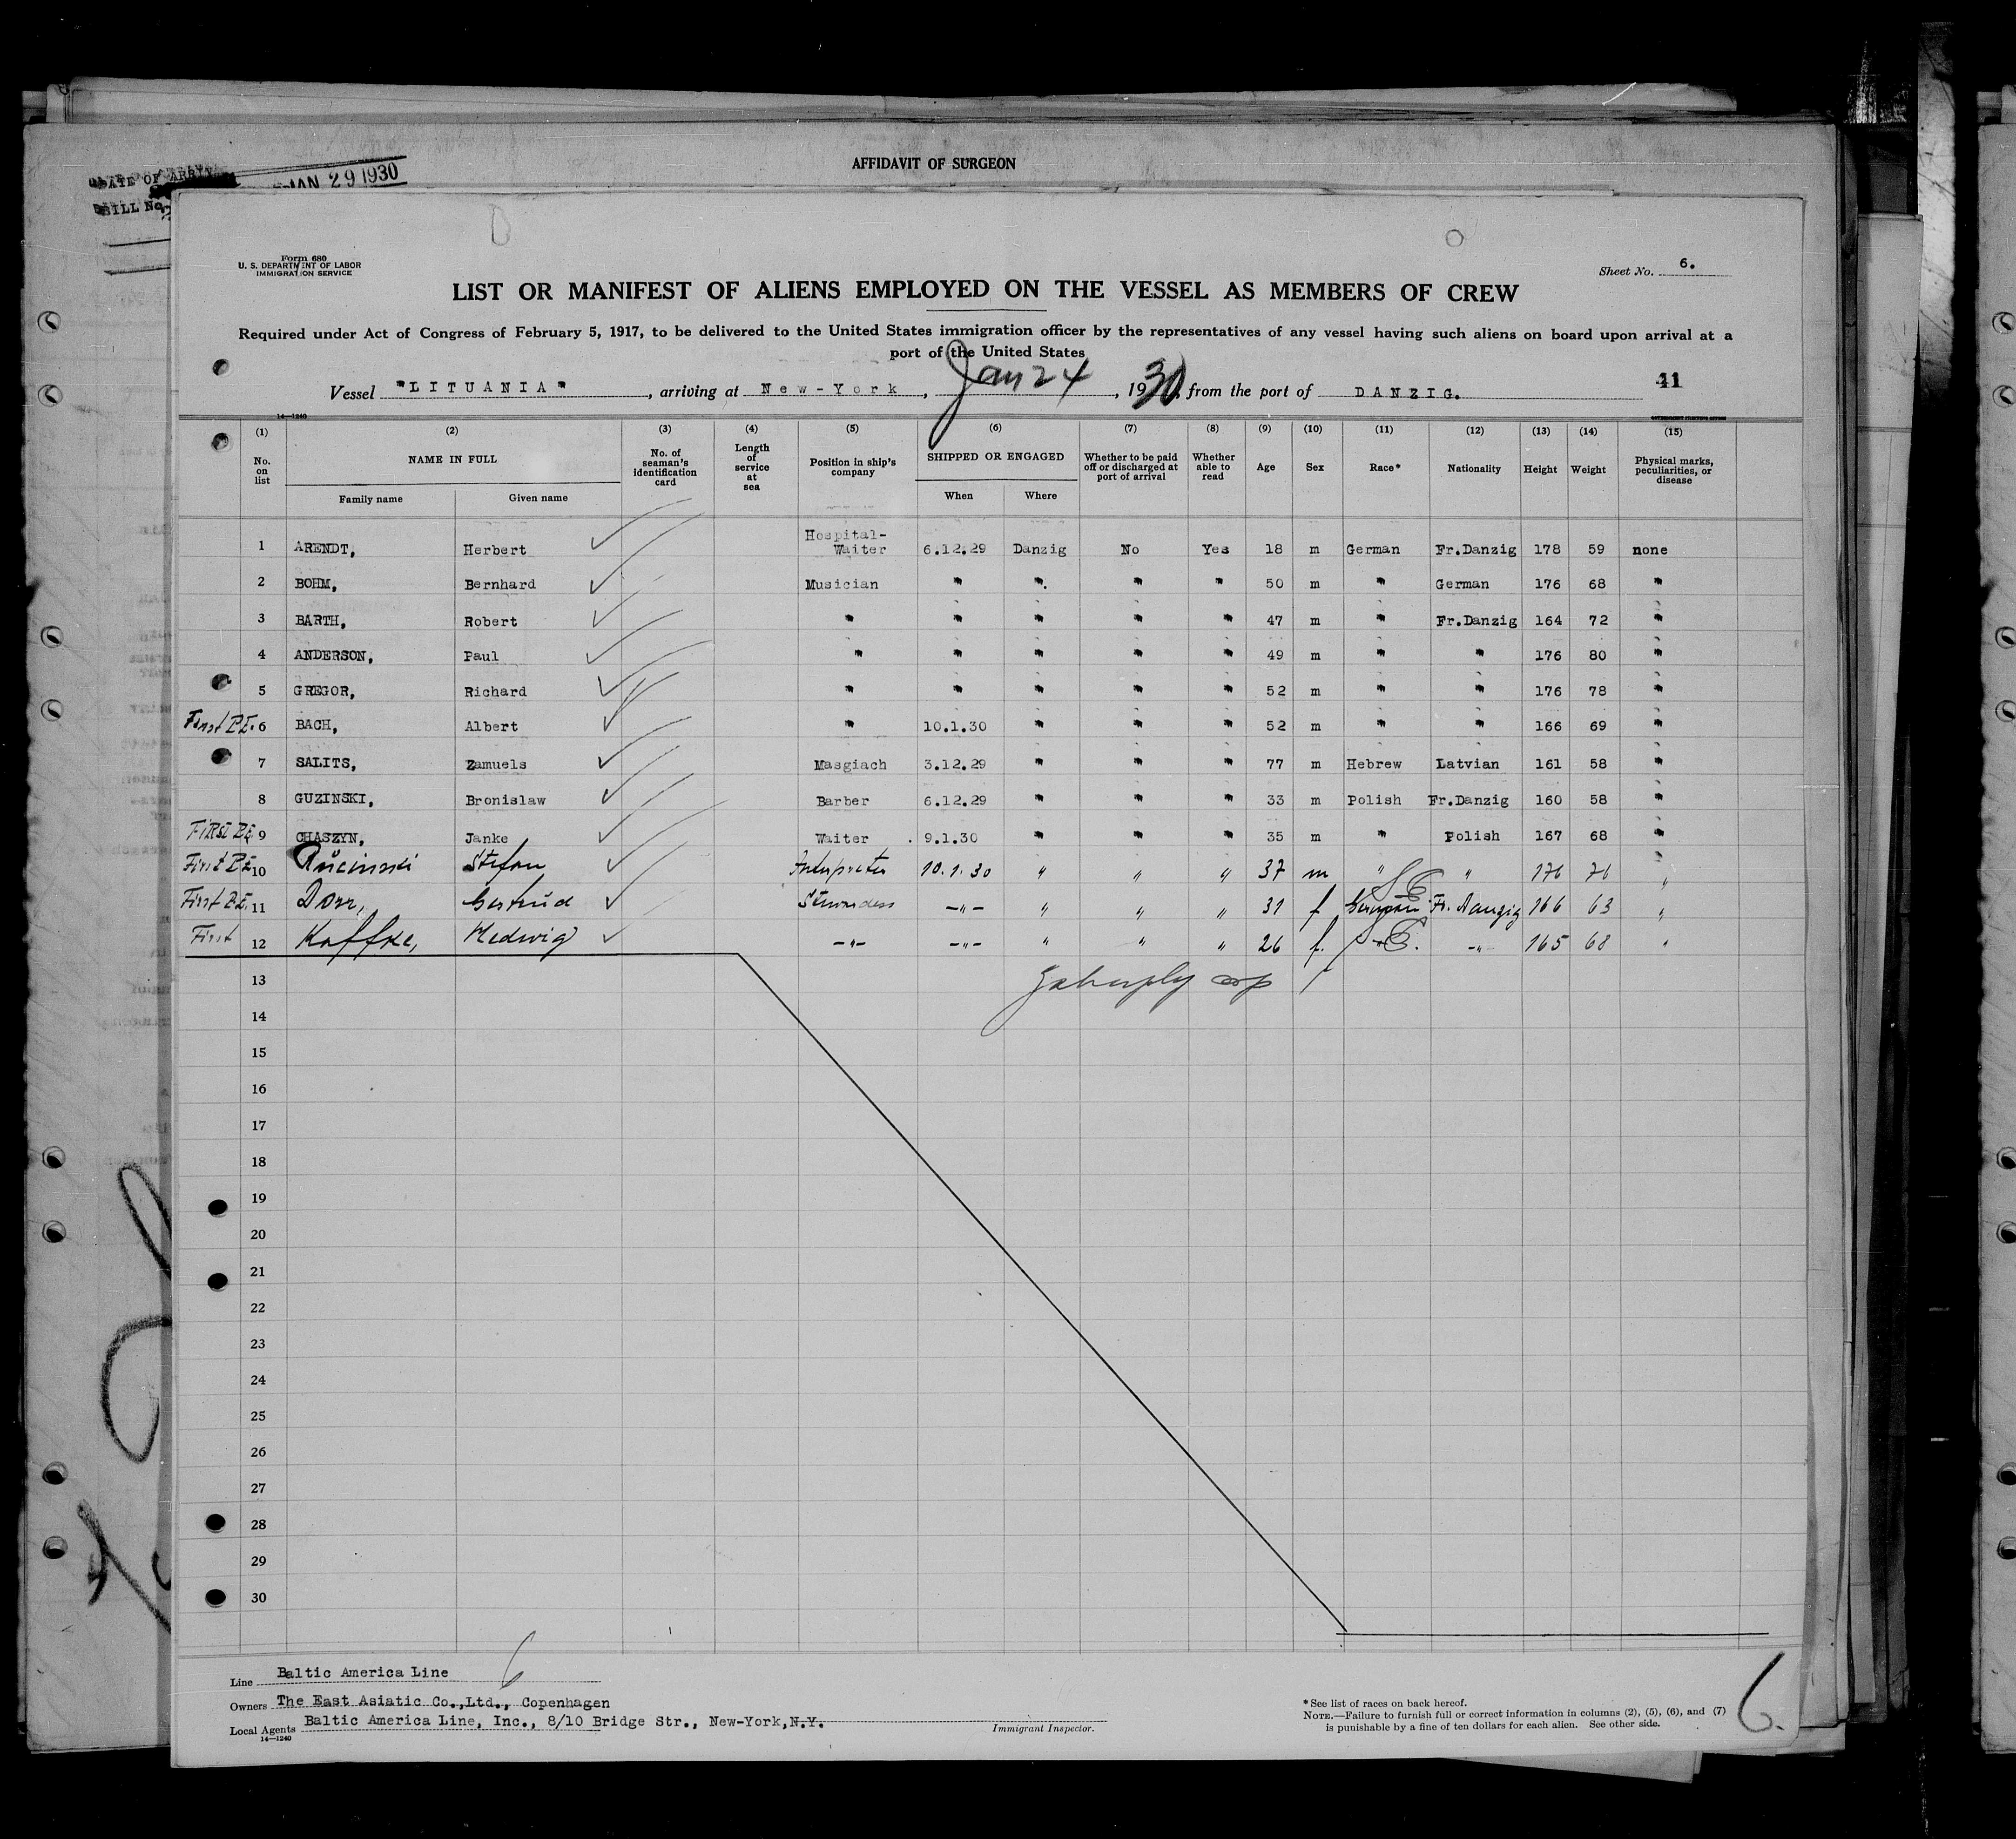 AFFIDAVIT OF SURGEON
DATE OF
JAN 29 1930
BILL No.
Form 680
U. S. DEPARTMENT OF LABOR
IMMIGRATION SERVICE
Sheet No. 6.
LIST OR MANIFEST OF ALIENS EMPLOYED ON THE VESSEL AS MEMBERS OF CREW
Required under Act of Congress of February 5, 1917, to be delivered to the United States immigration officer by the representatives of any vessel having such aliens on board upon arrival at a
port of the United States
Vessel "LITUANIA", arriving at New-York, Jan 24, 1930, from the port of DANZIG.
41
14—1240
(1) (2) (3) (4) (5) (6) (7) (8) (9) (10) (11) (12) (13) (14) (15)
No. on list
NAME IN FULL
Family name Given name
No. of seaman's identification card
Length of service at sea
Position in ship's company
SHIPPED OR ENGAGED
When Where
Whether to be paid off or discharged at port of arrival
Whether able to read
Age Sex Race* Nationality Height Weight
Physical marks, peculiarities, or disease
1 ARENDT, Herbert Hospital-Waiter 6.12.29 Danzig No Yes 18 m German Fr.Danzig 178 59 none
2 BOHM, Bernhard Musician " ". " " 50 m " German 176 68 "
3 BARTH, Robert " " " " " 47 m " Fr.Danzig 164 72 "
4 ANDERSON, Paul " " " " " 49 m " " 176 80 "
5 GREGOR, Richard " " " " " 52 m " " 176 78 "
First P.I. 6 BACH, Albert " 10.1.30 " " " 52 m " " 166 69 "
7 SALITS, Zamuels Masgiach 3.12.29 " " " 77 m Hebrew Latvian 161 58 "
8 GUZINSKI, Bronislaw Barber 6.12.29 " " " 33 m Polish Fr.Danzig 160 58 "
First P.I. 9 CHASZYN, Janke Waiter 9.1.30 " " " 35 m " Polish 167 68 "
First P.I. 10 Rucinski Stefan Interpreter 10.1.30 " " " 37 m " " 176 76 "
First P.I. 11 Dorr, Gertrud Stewardess -"- " " " 31 f German Fr. Danzig 166 63 "
First 12 Koffke, Hedwig -"- -"- " " " 26 f. -"- -"- 165 68 "
13
14
15
16
17
18
19
20
21
22
23
24
25
26
27
28
29
30
Line Baltic America Line 6
Owners The East Asiatic Co.,Ltd., Copenhagen
Local Agents Baltic America Line, Inc., 8/10 Bridge Str., New-York,N.Y.
14—1240
Immigrant Inspector.
*See list of races on back hereof.
NOTE.—Failure to furnish full or correct information in columns (2), (5), (6), and (7)
is punishable by a fine of ten dollars for each alien. See other side.
6.